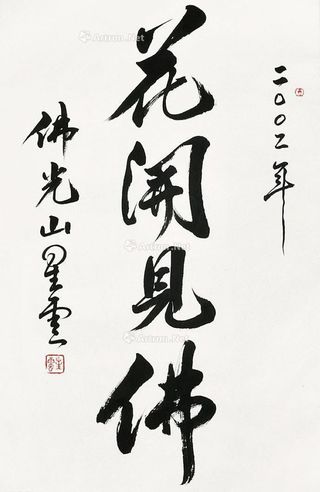 二〇〇二年
花開見佛
佛光山星雲